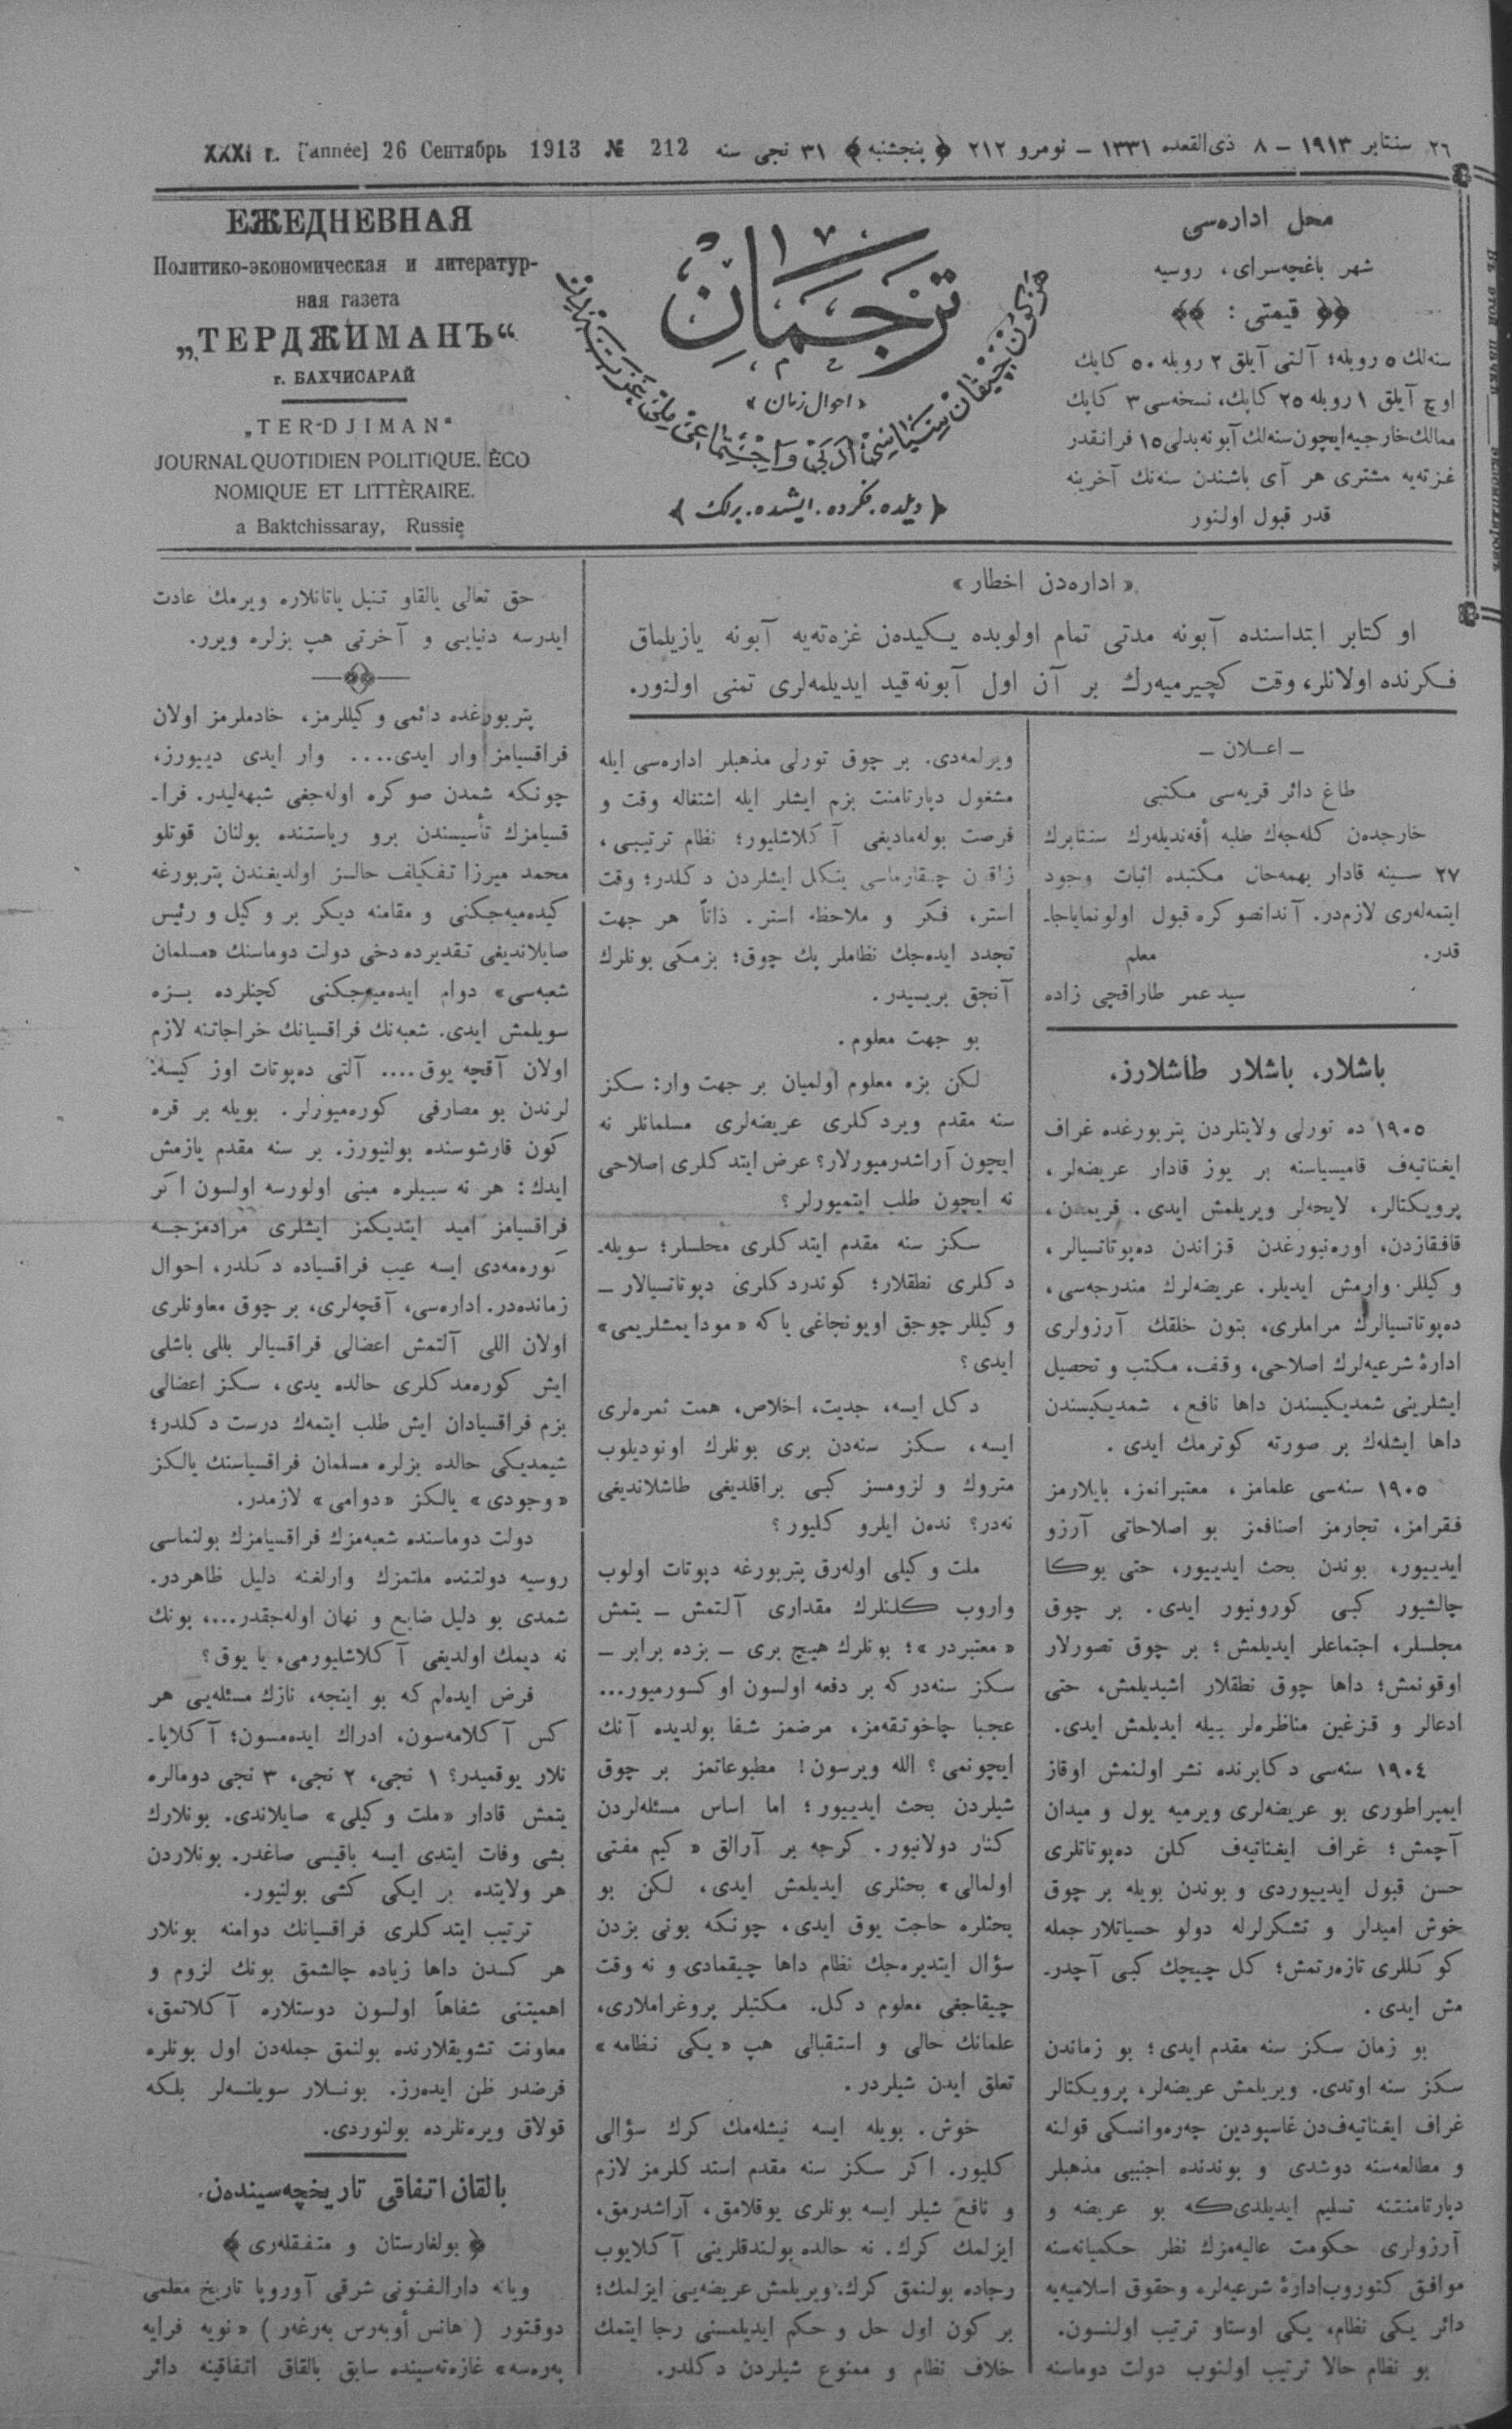 ٢٦ سنتابر ١٩١٣ – ٨ ذی‌القعده ١٣٣١ – نومرو ٢١٢ ﴿ پنجشنبه ﴾ ٣١ نجی سنه 212 № 1913 26 Сентябрь [année] XXXI г.
محل اداره‌سی
شهر باغچه‌سرای، روسیه
﴿﴿ قیمتی : ﴾﴾
سنه‌لك ٥ روبله؛ آلتی آیلق ٢ روبله ٥٠ كاپك
اوچ آیلق ١ روبله ٢٥ كاپك، نسخه‌سی ٣ كاپك
ممالك خارجیه ایچون سنه‌لك آبونه بدلی ١٥ فرانقدر
غزته‌یه مشتری هر آی باشندن سنه‌نك آخرینه
قدر قبول اولنور
ترجمان
« احوال زمان »
﴿ دیلده . فكرده . ایشده . برلك ﴾
ЕЖЕДНЕВНАЯ
Политико-экономическая и литератур-
ная газета
„ТЕРДЖИМАНЪ“
г. БАХЧИСАРАЙ
„TER-DJIMAN“
JOURNAL QUOTIDIEN POLITIQUE. ÈCO
NOMIQUE ET LITTÈRAIRE.
a Baktchissaray, Russie
« اداره‌دن اخطار »
او كتابر ابتداسنده آبونه مدتی تمام اولوبده یكیدەن غزه‌ته‌یه آبونه یازیلماق
فكرنده اولانلر، وقت كچیرمیه‌رك بر آن اول آبونه قید ایدیلمه‌لری تمنی اولنور.
– اعلان –
طاغ دائر قریه‌سی مكتبی
خارجدەن كله‌جەك طلبه أفه‌ندیلەرك سنتابرك
٢٧ سینه قادار بهمه‌حال مكتبده اثبات وجود
ایتمه‌لەری لازم‌در. آندانصوكره قبول اولونمایاجا-
قدر. معلم
سید عمر طاراقچی زاده
باشلار، باشلار طاشلارز.
١٩٠٥ ده تورلی ولایتلردن پتربورغده غراف
ایغناتیەف قامیسیاسنه بر یوز قادار عریضه‌لر،
پرویكتالر، لایحه‌لر ویریلمش ایدی. قریمدن،
قافقازدن، اورەنبورغدن قزاندن دەپوتاتسیالر،
وكیللر وارمش ایدیلر. عریضه‌لرك مندرجه‌سی،
دەپوتاتسیالرك مراملری، بتون خلقك آرزولری
ادارۀ شرعیه‌لرك اصلاحی، وقف، مكتب و تحصیل
ایشلرینی شمدیكیسندن داها نافع، شمدیكیسندن
داها ایشلەك بر صورته كوترمك ایدی.
١٩٠٥ سنه‌سی علمامز، معتبرانمز، بایلارمز
فقرامز، تجارمز اصنافمز بو اصلاحاتی آرزو
ایدییور، بوندن بحث ایدییور، حتی بوكا
چالشیور كبی كورونیور ایدی. بر چوق
مجلسلر، اجتماعلر ایدیلمش؛ بر چوق تصورلار
اوقونمش؛ داها چوق نطقلار اشیدیلمش، حتی
ادعالر و قزغین مناظره‌لر بیله ایدیلمش ایدی.
١٩٠٤ سنه‌سی دكابرنده نشر اولنمش اوقاز
ایمپراطوری بو عریضه‌لری ویرمیه یول و میدان
آچمش؛ غراف ایغناتیەف كلن دەپوتاتلری
حسن قبول ایدییوردی و بوندن بویله بر چوق
خوش امیدلر و تشكرلرله دولو حسیاتلار جمله
كوكللری تازه‌رتمش؛ كل چیچك كبی آچدر-
مش ایدی.
بو زمان سكز سنه مقدم ایدی؛ بو زماندن
سكز سنه اوتدی. ویریلمش عریضه‌لر، پرویكتالر
غراف ایغناتیەف‌دن غاسپودین چەرەوانسكی قولنه
و مطالعه‌سنه دوشدی و بوندنده اجنبی مذهبلر
دپارتامنتنه تسلیم ایدیلدی‌كه بو عریضه و
آرزولری حكومت عالیه‌مزك نظر حكمیانه‌سنه
موافق كتوروب ادارۀ شرعیه‌لره وحقوق اسلامیه‌یه
دائر یكی نظام، یكی اوستاو ترتیب اولنسون.
بو نظام حالا ترتیب اولنوب دولت دوماسنه
ویرلمه‌دی. بر چوق تورلی مذهبلر اداره‌سی ایله
مشغول دپارتامنت بزم ایشلر ایله اشتغاله وقت و
فرصت بوله‌مادیغی آكلاشلیور؛ نظام ترتیبی،
زاقون چیقارماسی ینكل ایشلردن دكلدر؛ وقت
استر، فكر و ملاحظه استر. ذاتاً هر جهت
تجدد ایده‌جك نظاملر پك چوق؛ بزمكی بونلرك
آنجق بریسیدر.
بو جهت معلوم.
لكن بزه معلوم اولمیان بر جهت وار: سكز
سنه مقدم ویردكلری عریضه‌لری مسلمانلر نه
ایچون آراشدرمیورلار؟ عرض ایتدكلری اصلاحی
نه ایچون طلب ایتمیورلر؟
سكز سنه مقدم ایتدكلری مجلسلر؛ سویله-
دكلری نطقلار؛ كوندردكلری دپوتاتسیالار –
وكیللر چوجق اویونجاغی یاكه « مودا یمشلریمی»
ایدی؟
دكل ایسه، جدیت، اخلاص، همت ثمره‌لری
ایسه، سكز سنه‌دن بری بونلرك اونودیلوب
متروك و لزومسز كبی براقلدیغی طاشلاندیغی
نه‌در؟ نه‌دن ایلرو كلیور؟
ملت وكیلی اوله‌رق پتربورغه دپوتات اولوب
واروب كلنلرك مقداری آلتمش – یتمش
« معتبردر »؛ بونلرك هیچ بری – بزده برابر –
سكز سنه‌در كه بر دفعه اولسون اوكسورمیور...
عجبا چاخوتقه‌مز، مرضمز شفا بولدیده آنك
ایچونمی؟ الله ویرسون! مطبوعاتمز بر چوق
شیلردن بحث ایدییور؛ اما اساس مسئله‌لردن
كنار دولانیور. كرچه بر آرالق « كیم مفتی
اولمالی» بحثلری ایدیلمش ایدی، لكن بو
بحثلره حاجت یوق ایدی، چونكه بونی بزدن
سؤال ایتدیره‌جك نظام داها چیقمادی و نه وقت
چیقاجغی معلوم دكل. مكتبلر پروغراملاری،
علمانك حالی و استقبالی هپ « یكی نظامه »
تعلق ایدن شیلردر.
خوش. بویله ایسه نیشله‌مك كرك سؤالی
كلیور. اكر سكز سنه مقدم استدكلرمز لازم
و نافع شیلر ایسه بونلری یوقلامق، آراشدرمق،
ایزلمك كرك. نه حالده بولندقلرینی آكلایوب
رجاده بولنمق كرك. ویریلمش عریضه‌یی ایزلمك؛
بر كون اول حل و حكم ایدیلمسنی رجا ایتمك
خلاف نظام و ممنوع شیلردن دكلدر.
حق تعالی یالقاو تنبل یاتانلاره ویرمك عادت
ایدرسه دنیایی و آخرتی هپ بزلره ویرر.
پتربورغده دائمی وكیللرمز، خادملرمز اولان
فراقسیامز وار ایدی.... وار ایدی دیبورز،
چونكه شمدن صوكره اوله‌جغی شبهه‌لیدر. فرا-
قسیامزك تأسیسندن برو ریاستنده بولنان قوتلو
محمد میرزا تفكیلف حالسز اولدیغندن پتربورغه
كیده‌میه‌جكنی و مقامنه دیكر بر وكیل و رئیس
صایلاندیغی تقدیرده دخی دولت دوماسنك «مسلمان
شعبه‌سی» دوام ایده‌میه‌جكنی كچنلرده بزه
سویلمش ایدی. شعبه‌نك فراقسیانك خراجاتنه لازم
اولان آقچه یوق.... آلتی دەپوتات اوز كیسه-
لرندن بو مصارفی كوره‌میورلر. بویله بر قره
كون قارشوسنده بولنیورز. بر سنه مقدم یازمش
ایدك: هر نه سببلره مبنی اولورسه اولسون اكر
فراقسیامز امید ایتدیكمز ایشلری مرادمزجه
كوره‌مه‌دی ایسه عیب فراقسیاده دكلدر، احوال
زمانده‌در. اداره‌سی، آقچه‌لری، بر چوق معاونلری
اولان اللی آلتمش اعضالی فراقسیالر بللی باشلی
ایش كوره‌مدكلری حالده یدی، سكز اعضالی
بزم فراقسیادان ایش طلب ایتمه‌ك درست دكلدر؛
شیمدیكی حالده بزلره مسلمان فراقسیاسنك یالكز
«وجودی» یالكز «دوامی» لازمدر.
دولت دوماسنده شعبه‌مزك فراقسیامزك بولنماسی
روسیه دولتنده ملتمزك وارلغنه دلیل ظاهردر.
شمدی بو دلیل ضایع و نهان اوله‌جقدر...، بونك
نه دیمك اولدیغی آكلاشلیورمی، یا یوق؟
فرض ایده‌لم كه بو اینجه، نازك مسئله‌یی هر
كس آكلامه‌سون، ادراك ایده‌مسون؛ آكلایا-
نلار یوقمیدر؟ ١ نجی، ٢ نجی، ٣ نجی دومالره
یتمش قادار «ملت وكیلی» صایلاندی. بونلارك
بشی وفات ایتدی ایسه باقیسی صاغدر. بونلاردن
هر ولایتده بر ایكی كشی بولنیور.
ترتیب ایتدكلری فراقسیانك دوامنه بونلار
هر كسدن داها زیاده چالشمق بونك لزوم و
اهمیتنی شفاهاً اولسون دوستلاره آكلاتمق،
معاونت تشویقلارنده بولنمق جمله‌دن اول بونلره
فرضدر ظن ایده‌رز. بونلار سویلنسه‌لر بلكه
قولاق ویره‌نلرده بولنوردی.
بالقان اتفاقی تاریخچه‌سیندەن.
﴿ بولغارستان و متفقله‌ری ﴾
ویانه دارالفنونی شرقی آوروپا تاریخ معلمی
دوقتور ( هانس أوبەرس بەرغەر ) « نویه فرایه
پەرەسه» غازەتەسینده سابق بالقان اتفاقینه دائر